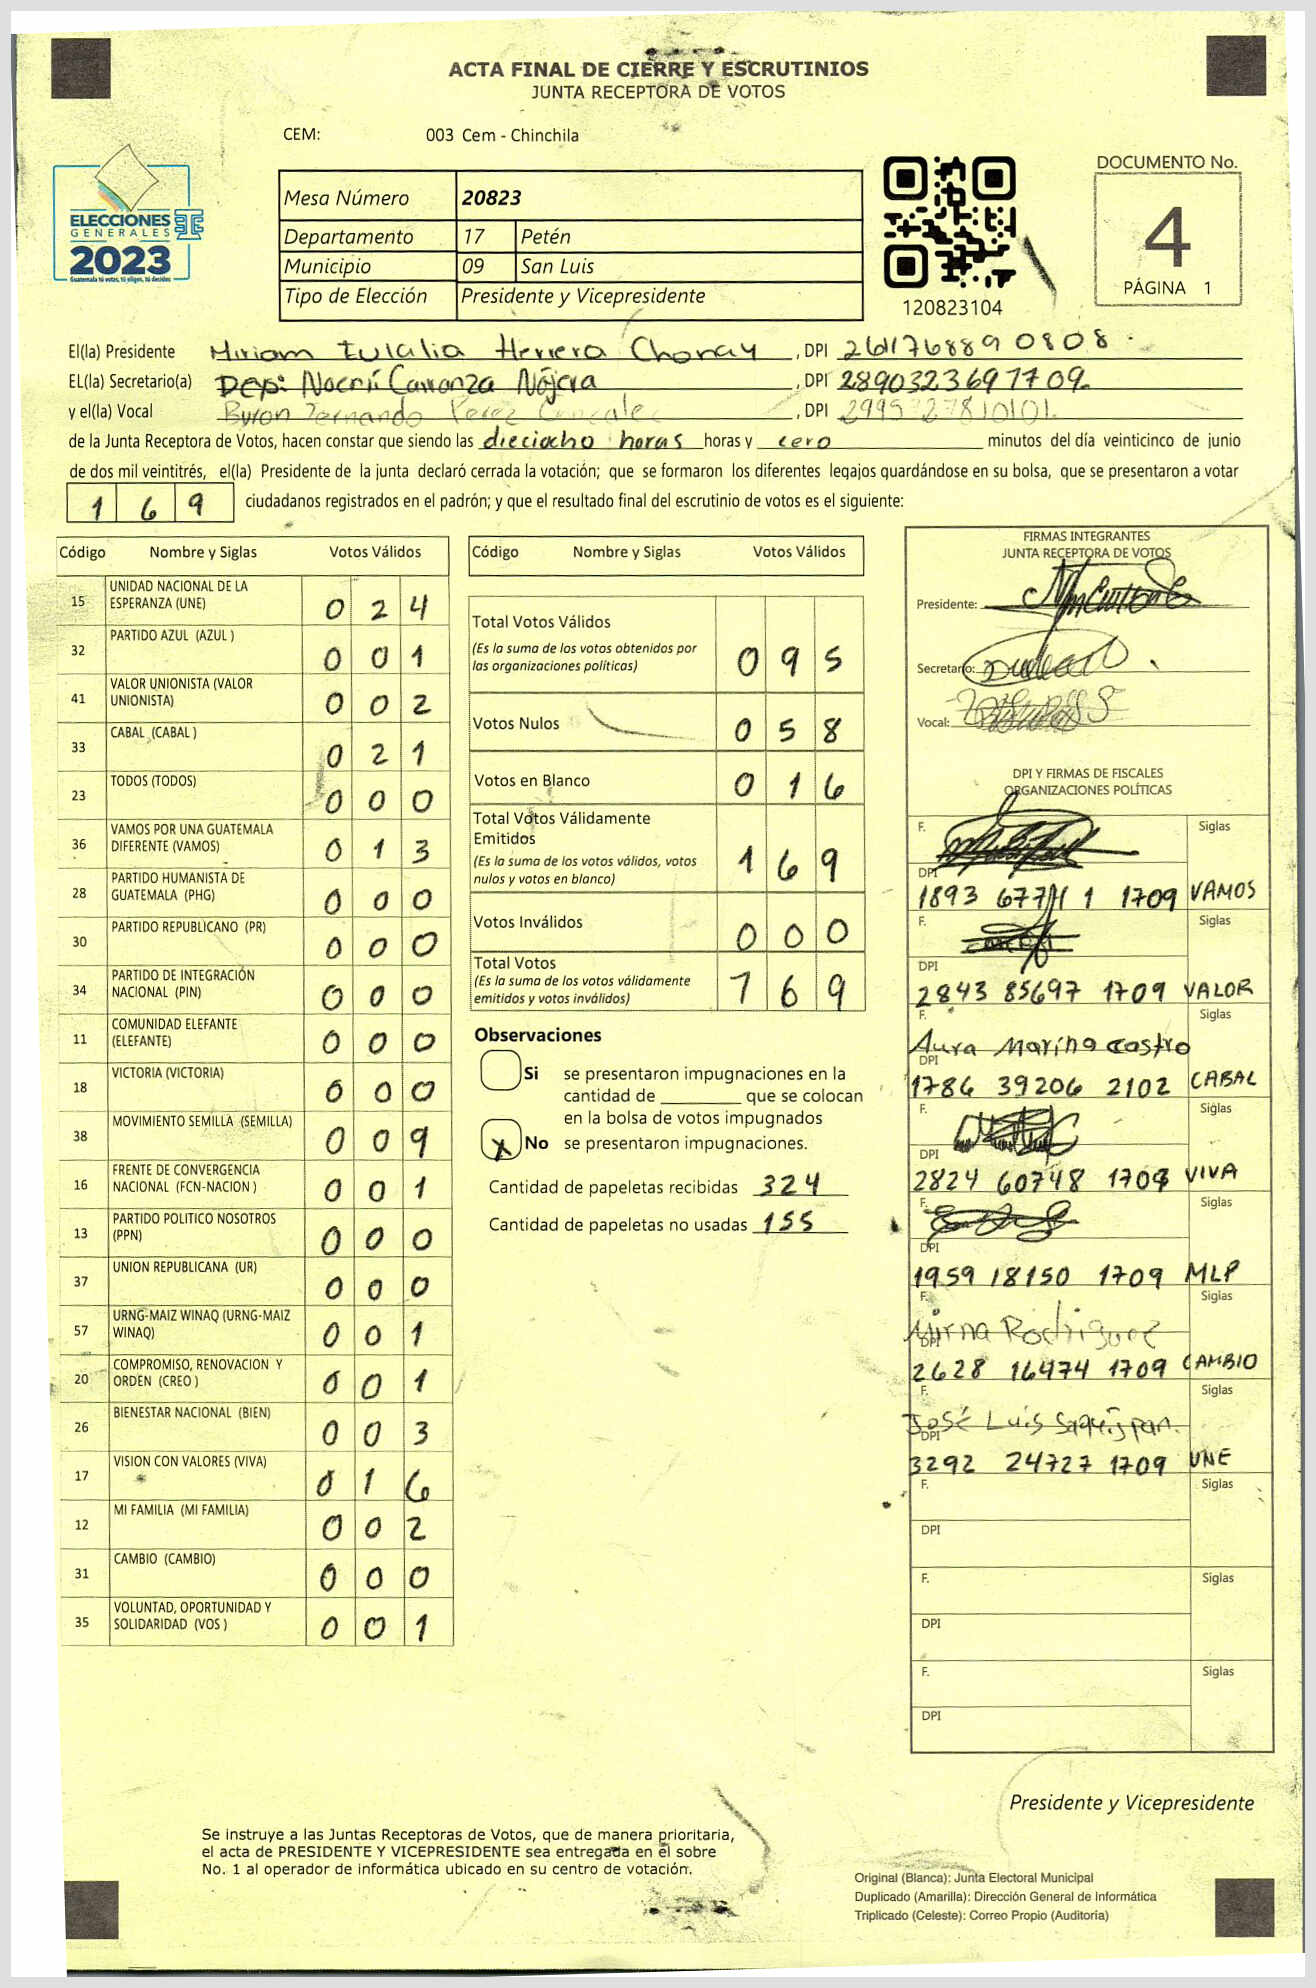 ACTA FINAL DE CIERRE Y ESCRUTINIOS
JUNTA RECEPTORA DE VOTOS
CEM: 003 Cem - Chinchila
ELECCIONES
GENERALES
2023
Guatemala tú votas, tú eliges, tú decides
Mesa Número 20823
Departamento 17 Petén
Municipio 09 San Luis
Tipo de Elección Presidente y Vicepresidente
120823104
DOCUMENTO No.
4
PÁGINA 1
El(la) Presidente Miriam Eulalia Herrera Chonay, DPI 261768890808
EL(la) Secretario(a) Deysi Noemí Carranza Nájera, DPI 2890323691709
y el(la) Vocal Byron Fernando Perez, DPI 2995727810101
de la Junta Receptora de Votos, hacen constar que siendo las dieciocho horas horas y cero minutos del día veinticinco de junio
de dos mil veintitrés, el(la) Presidente de la junta declaró cerrada la votación; que se formaron los diferentes legajos guardándose en su bolsa, que se presentaron a votar
169 ciudadanos registrados en el padrón; y que el resultado final del escrutinio de votos es el siguiente:
Código Nombre y Siglas Votos Válidos
15 UNIDAD NACIONAL DE LA ESPERANZA (UNE) 024
32 PARTIDO AZUL (AZUL ) 001
41 VALOR UNIONISTA (VALOR UNIONISTA) 002
33 CABAL (CABAL ) 021
23 TODOS (TODOS) 000
36 VAMOS POR UNA GUATEMALA DIFERENTE (VAMOS) 013
28 PARTIDO HUMANISTA DE GUATEMALA (PHG) 000
30 PARTIDO REPUBLICANO (PR) 000
34 PARTIDO DE INTEGRACIÓN NACIONAL (PIN) 000
11 COMUNIDAD ELEFANTE (ELEFANTE) 000
18 VICTORIA (VICTORIA) 000
38 MOVIMIENTO SEMILLA (SEMILLA) 009
16 FRENTE DE CONVERGENCIA NACIONAL (FCN-NACION ) 001
13 PARTIDO POLITICO NOSOTROS (PPN) 000
37 UNION REPUBLICANA (UR) 000
57 URNG-MAIZ WINAQ (URNG-MAIZ WINAQ) 001
20 COMPROMISO, RENOVACION Y ORDEN (CREO ) 001
26 BIENESTAR NACIONAL (BIEN) 003
17 VISION CON VALORES (VIVA) 016
12 MI FAMILIA (MI FAMILIA) 002
31 CAMBIO (CAMBIO) 000
35 VOLUNTAD, OPORTUNIDAD Y SOLIDARIDAD (VOS ) 001
Código Nombre y Siglas Votos Válidos
Total Votos Válidos 095
(Es la suma de los votos obtenidos por
las organizaciones políticas)
Votos Nulos 058
Votos en Blanco 016
Total Votos Válidamente
Emitidos 169
(Es la suma de los votos válidos, votos
nulos y votos en blanco)
Votos Inválidos 000
Total Votos 169
(Es la suma de los votos válidamente
emitidos y votos inválidos)
Observaciones
Si se presentaron impugnaciones en la
cantidad de ________ que se colocan
en la bolsa de votos impugnados
X No se presentaron impugnaciones.
Cantidad de papeletas recibidas 324
Cantidad de papeletas no usadas 155
FIRMAS INTEGRANTES
JUNTA RECEPTORA DE VOTOS
Presidente:
Secretario:
Vocal:
DPI Y FIRMAS DE FISCALES
ORGANIZACIONES POLÍTICAS
F. Siglas
DPI
1893 1 1709 VAMOS
F. Siglas
DPI
2843 85697 1709 VALOR
F. Siglas
Aura Marina Castro
DPI
1786 39206 2102 CABAL
F. Siglas
DPI
2824 60748 1709 VIVA
F. Siglas
DPI
1959 18150 1709 MLP
F. Siglas
Mirna Rodriguez
DPI
2628 16474 1709 CAMBIO
F. Siglas
José Luis
DPI
3292 24727 1709 UNE
F. Siglas
DPI
F. Siglas
DPI
F. Siglas
DPI
Presidente y Vicepresidente
Se instruye a las Juntas Receptoras de Votos, que de manera prioritaria,
el acta de PRESIDENTE Y VICEPRESIDENTE sea entregada en el sobre
No. 1 al operador de informática ubicado en su centro de votación.
Original (Blanca): Junta Electoral Municipal
Duplicado (Amarilla): Dirección General de Informática
Triplicado (Celeste): Correo Propio (Auditoría)